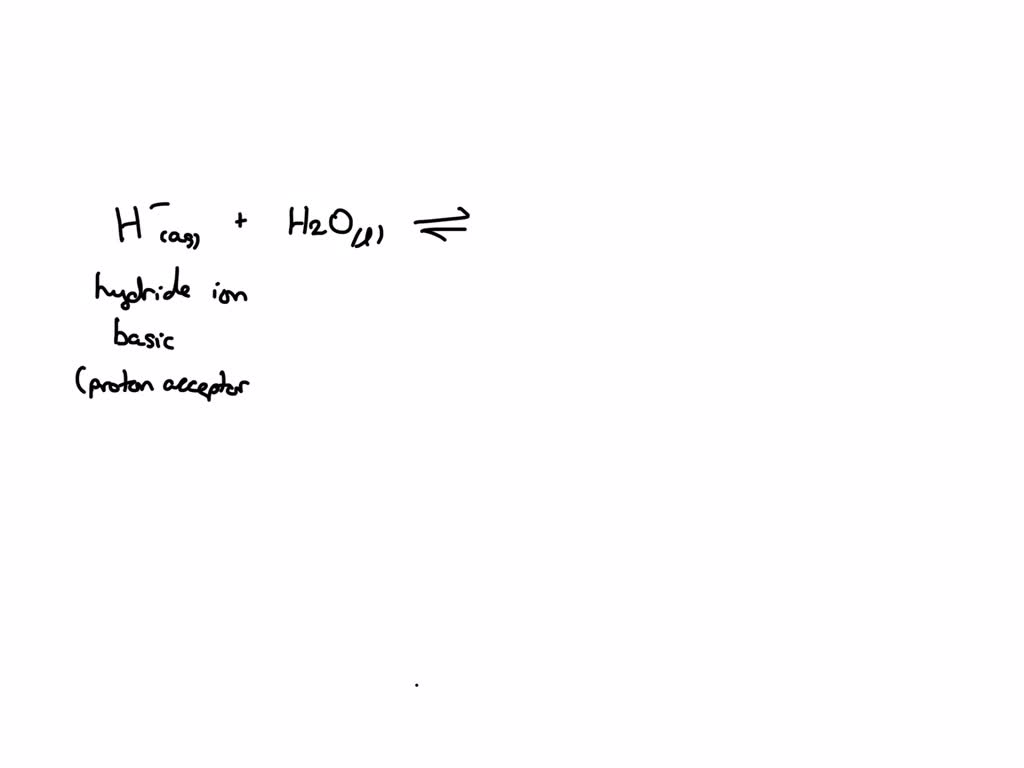 H⁻(aq) + H2O(l) ⇌
hydride ion
basic
(proton acceptor